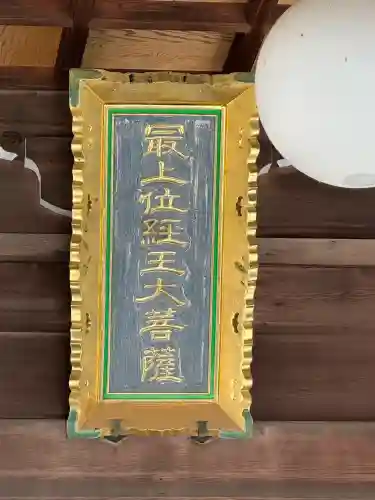 最上位経王大菩薩